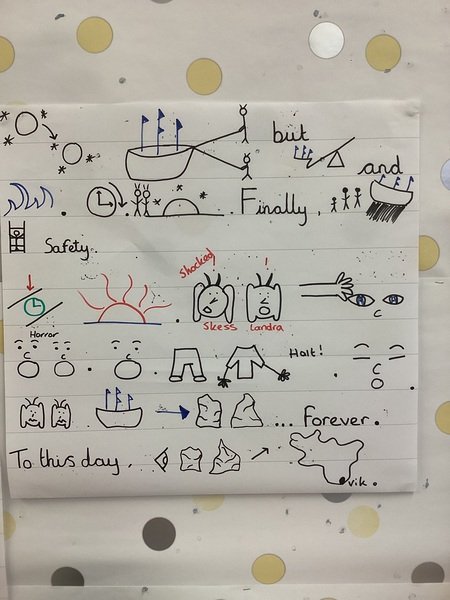 but
and
Finally,
Safety.
Shocked !
Skess Landra
Horror
Halt! .
... Forever.
To this day, vik.